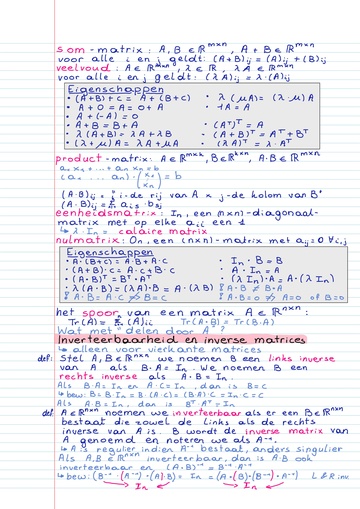 som-matrix: A, B ∈ ℝᵐˣⁿ, A + B ∈ ℝᵐˣⁿ
voor alle i en j geldt: (A+B)ij = (A)ij + (B)ij
veelvoud: A ∈ ℝᵐˣⁿ, λ ∈ ℝ, λA ∈ ℝᵐˣⁿ
voor alle i en j geldt: (λA)ij = λ·(A)ij
Eigenschappen
• (A+B)+C = A+(B+C) • λ(μA) = (λ·μ)A
• A + O = A = O + A • 1A = A
• A + (-A) = O
• A+B = B+A • (Aᵀ)ᵀ = A
• λ(A+B) = λA + λB • (A+B)ᵀ = Aᵀ + Bᵀ
• (λ+μ)A = λA + μA • (λA)ᵀ = λ·Aᵀ
product-matrix: A ∈ ℝᵐˣᵏ, B ∈ ℝᵏˣⁿ, A·B ∈ ℝᵐˣⁿ
a₁x₁ + ... + aₙxₙ = b
(a₁ ... aₙ)·(x₁ ⋮ xₙ) = b
(A·B)ij = "i-de rij van A × j-de kolom van B"
(A·B)ij = Σ ais·bsj
eenheidsmatrix: In, een (n×n)-diagonaal-
matrix met op elke aii een 1
↳ λ·In = calaire matrix
nulmatrix: On, een (n×n)-matrix met aij = 0 ∀i,j
Eigenschappen
• A·(B+C) = A·B + A·C • In·B = B
• (A+B)·C = A·C + B·C • A·In = A
• (A·B)ᵀ = Bᵀ·Aᵀ • (λIn)·A = A·(λIn)
• λ(A·B) = (λA)·B = A·(λB) ! A·B ≠ B·A
! A·B = A·C ⇏ B = C ! A·B = O ⇏ A = O of B = O
het spoor van een matrix A ∈ ℝⁿˣⁿ:
Tr(A) = Σ (A)ii Tr(A·B) = Tr(B·A)
Wat met "delen door A"?
Inverteerbaarheid en inverse matrices
↳ alleen voor vierkante matrices
def: Stel A, B ∈ ℝⁿˣⁿ we noemen B een links inverse
van A als B·A = In. We noemen B een
rechts inverse als A·B = In.
Als B·A = In en A·C = In, dan is B = C
↳ bew: B = B·In = B·(A·C) = (B·A)·C = In·C = C
Als A·B = In, dan is Bᵀ·Aᵀ = In
def: A ∈ ℝⁿˣⁿ noemen we inverteerbaar als er een B ∈ ℝⁿˣⁿ
bestaat die zowel de links als de rechts
inverse van A is. B wordt de inverse matrix van
A genoemd en noteren we als A⁻¹.
↳ A is regulier indien A⁻¹ bestaat, anders singulier
Als A, B ∈ ℝⁿˣⁿ inverteerbaar, dan is A·B ook
inverteerbaar en (A·B)⁻¹ = B⁻¹·A⁻¹
↳ bew: (B⁻¹·(A⁻¹)·(A)·B) = In = (A·(B)·(B⁻¹)·A⁻¹) L & R inv.
In In